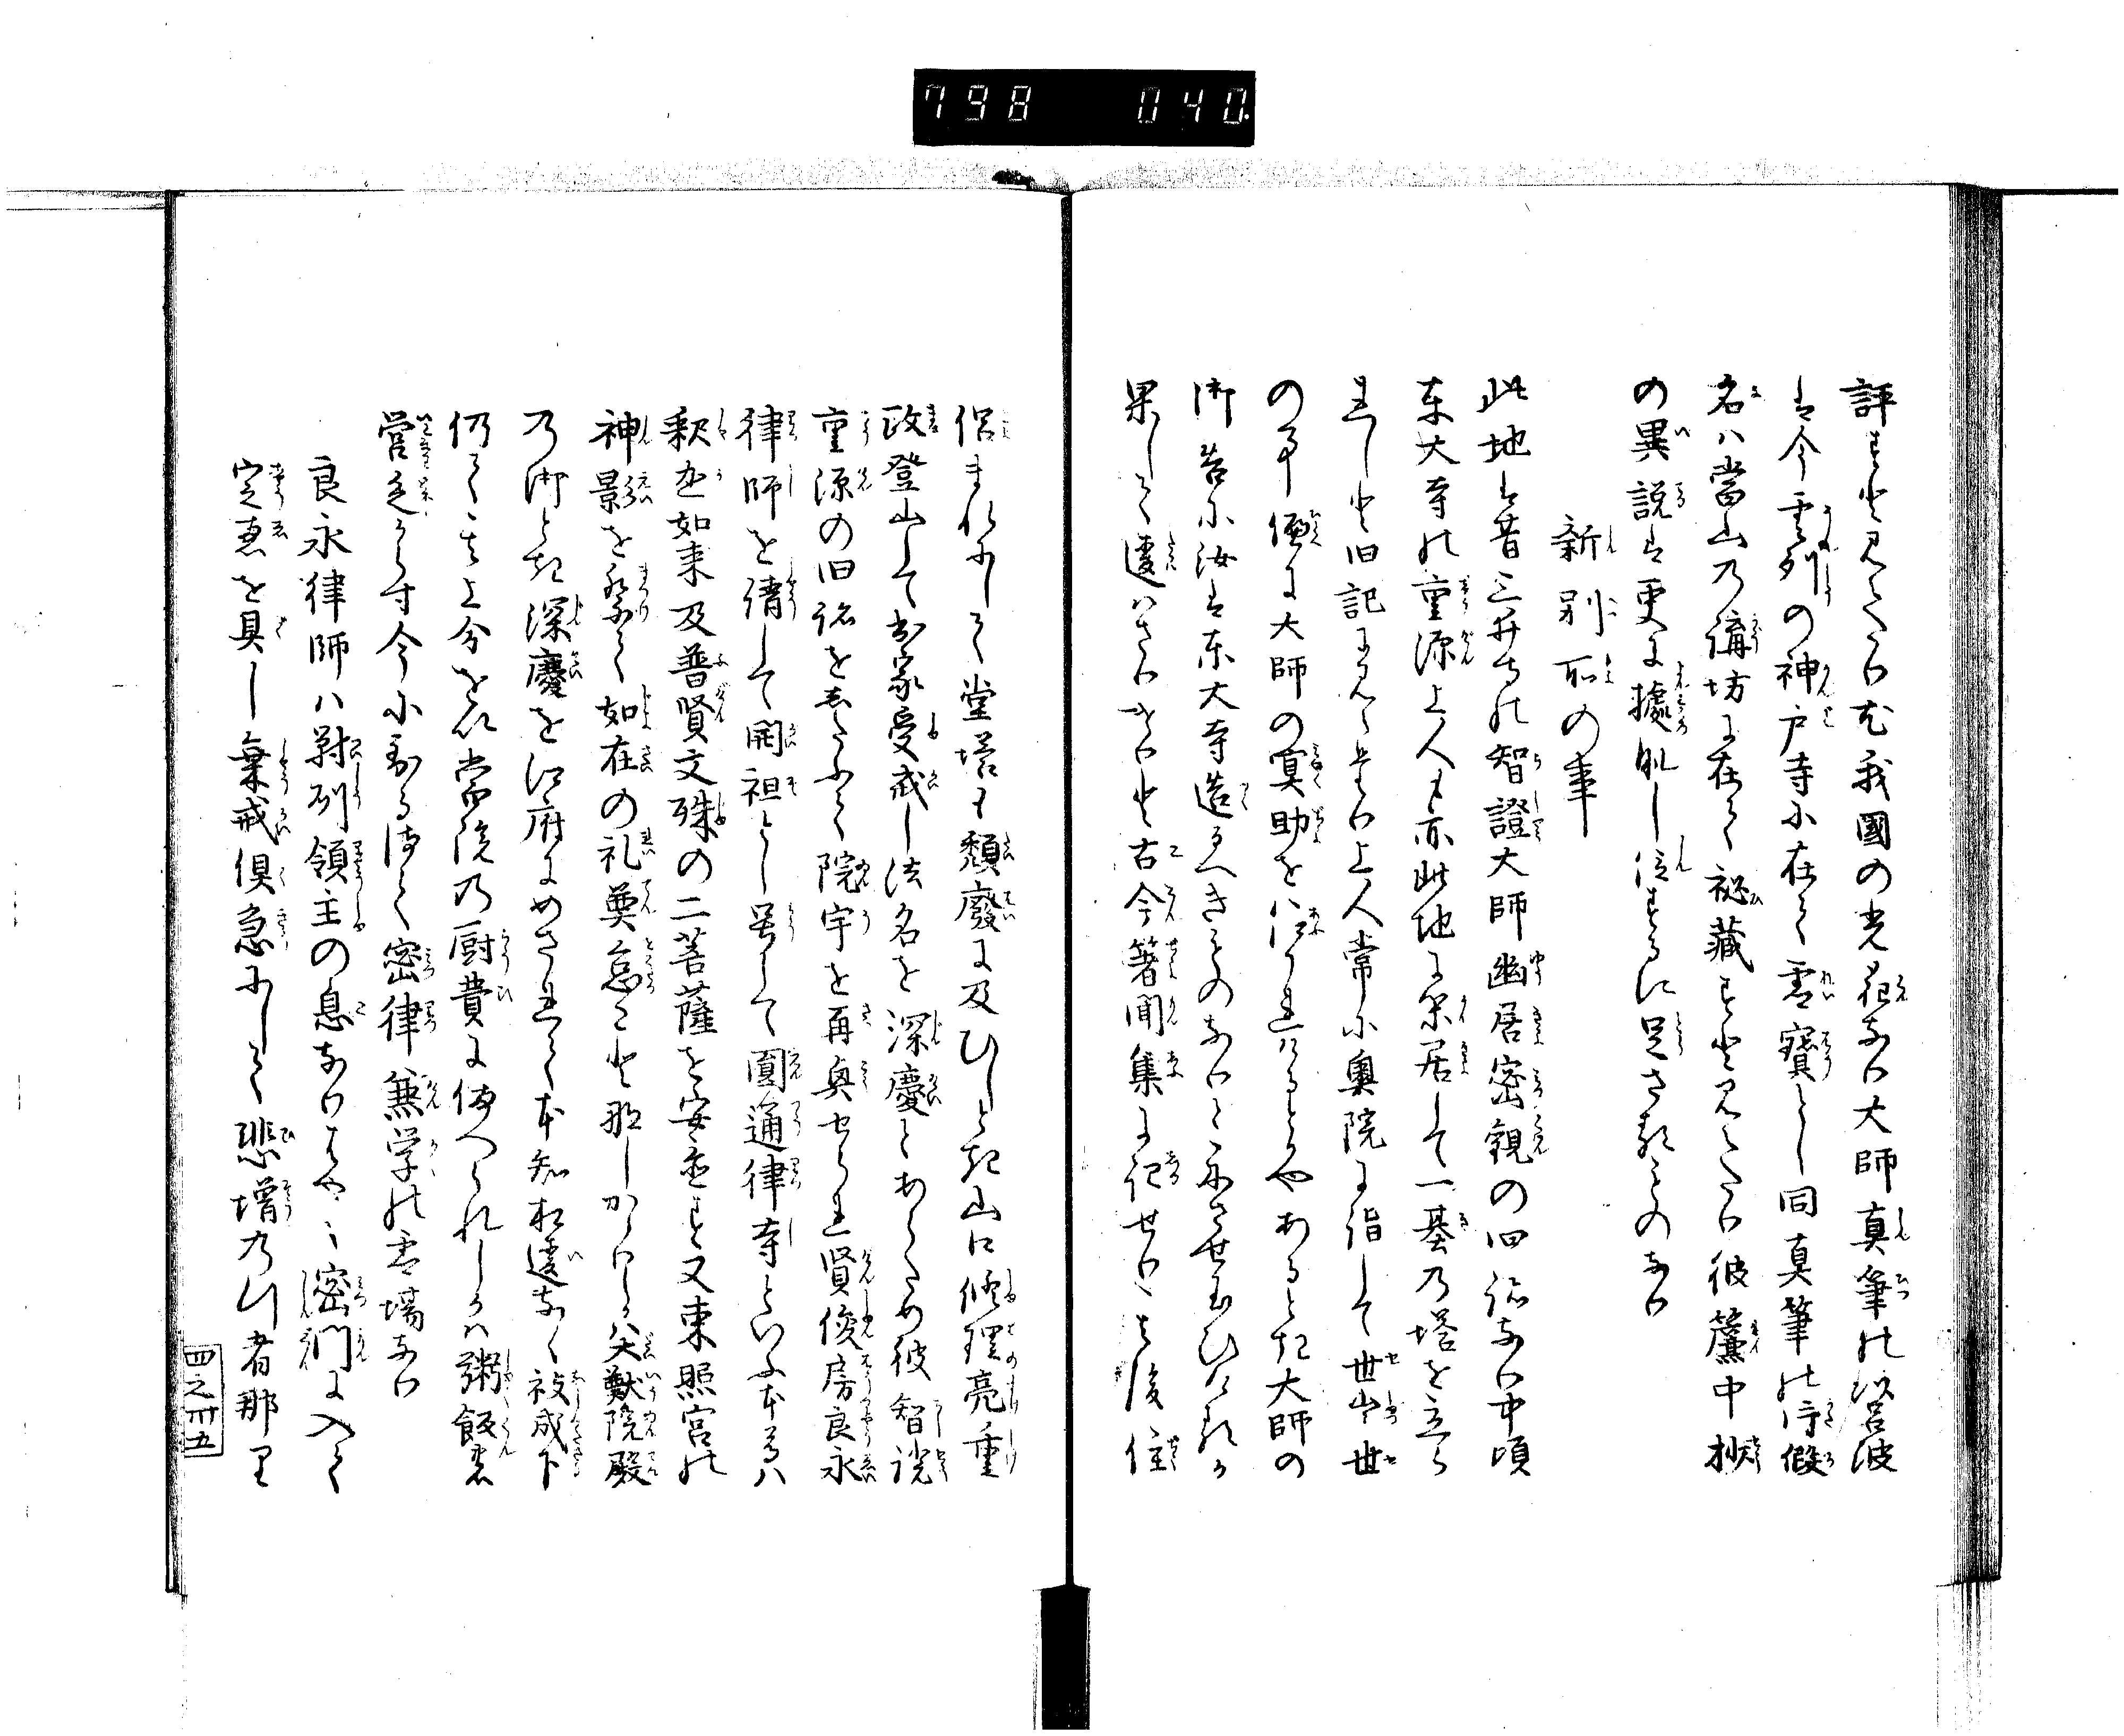 798 040.
評すと見えたり尤我國の光花なり大師真筆の
は今雲列の神戸寺に在て霊寳とし同真筆の
名ハ當山乃講坊に在て秘藏すと見えたり彼簾中抄
の異説は更に據なし信するに足さるものなり
新別所の事
此地は昔三井寺の智證大師幽居密観の旧跡なり中頃
東大寺の重源上人も亦此地に居して一基乃塔を立ら
れしと旧記に見ゆ上人常に奥院に詣して世出世
の事偏に大師の冥助をハれけるとかやあるとき大師の
御告に汝は東大寺造るへきものなりと示させ玉ひけるか
果して違ハさりけりと古今著聞集に記せり其後住
侶まれにして堂塔も頽廢に及ひしとき山口修理亮重
政登山して出家受戒し法名を深慶とあらため彼智證
重源の旧跡をしたふて院宇を再興せられ賢俊房良永
律師を請して開祖とし号して圓通律寺といふ本尊ハ
釈迦如来及普賢文殊の二菩薩を安置す又東照宮の
神影を祭て如在の礼奠怠と那しかりけり大猷院殿
乃御とき深慶を江府にめされて本知相違なく被成下
仍て其上分をハ當院乃厨費に備へられしかハ粥飯
營足らす今に到る迄て密律兼学の霊場なり
良永律師ハ對列領主の息なりはやく密門に入て
定惠を具し乗戒倶急にして悲増乃行者那里
四之卅五